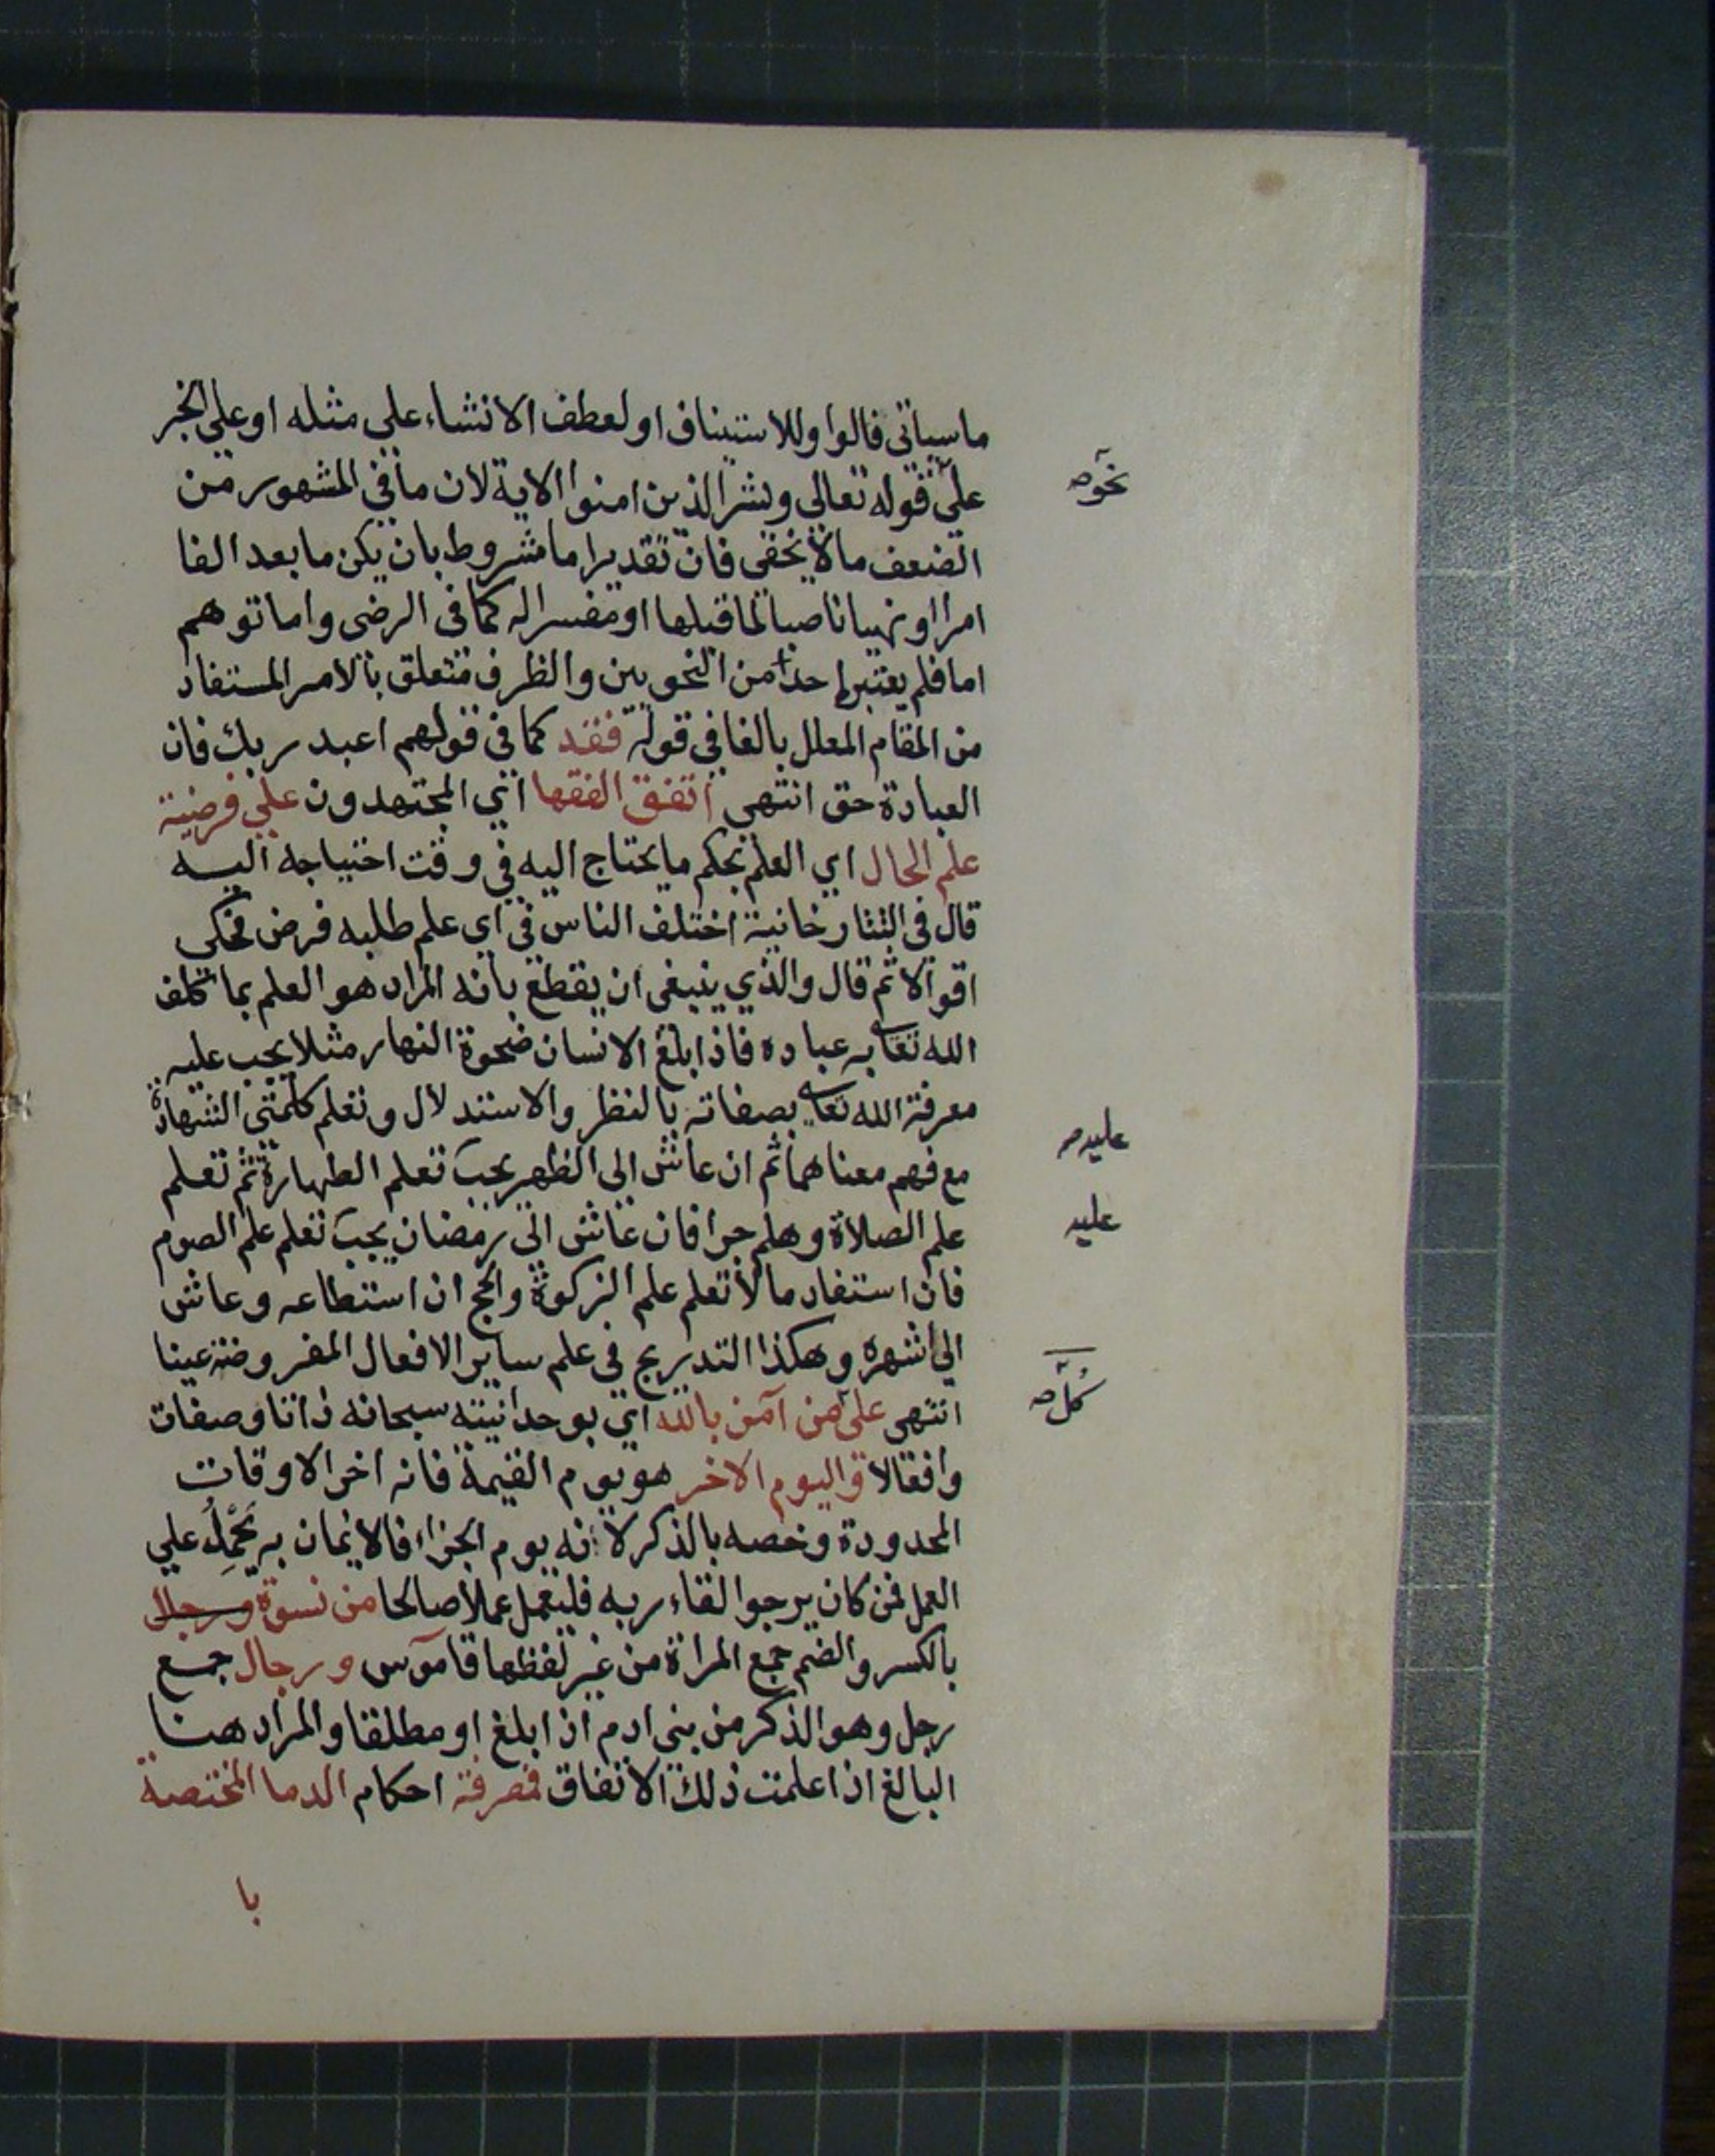 ما سياتى فالوا وللاستيناف او لعطف الانشاء على مثله او على الخبر
على قوله تعالى وبشر الذين امنوا الاية لان ما في المشهور من
نحو صح
الضعف ما لا يخفى فان تقدير اما مشروط بان يكن ما بعد الفا
امرا او نهيا ناصبا لما قبلها او مفسرا له كما فى الرضى واما توهم
اما فلم يعتبرها احد من النحويين والظرف متعلق بالامر المستفاد
من المقام المعلل بالفا في قوله فقد كما فى قولهم اعبد ربك فان
العبادة حق انتهى اتفق الفقها اي المجتهدون على فرضية
علم الحال اي العلم بحكم ما يحتاج اليه في وقت احتياجه اليه
قال فى التتارخانية اختلف الناس في اى علم طلبه فرض فحكى
اقوالا ثم قال والذي ينبغى ان يقطع بانه المراد هو العلم بما كلف
الله تعالى به عباده فاذا بلغ الانسان ضحوة النهار مثلا يجب عليه
معرفة الله تعالى بصفاته بالنظر والاستدلال وتعلم كلمتى الشهادة
مع فهم معناهما ثم ان عاش الى الظهر يجب تعلم الطهارة ثم تعلم
عليه صح
علم الصلاة وهلم جرا فان عاش الى رمضان يجب تعلم علم الصوم
عليه
فان استفاد مالا تعلم علم الزكوة والحج ان استطاعه وعاش
الى اشهره وهكذا التدريج فى علم ساير الافعال المفروضة عينا
انتهى على من آمن بالله اي بوحدانيته سبحانه ذاتا وصفات
كل صح
وافعالا واليوم الاخر هو يوم القيمة فانه اخر الاوقات
المحدودة وخصه بالذكر لانه يوم الجزاء فالايمان به يحمل علي
العمل فمن كان يرجوا لقاء ربه فليعمل عملا صالحا من نسوة ورجال
بالكسر والضم جمع المراة من غير لفظها قاموس ورجال جمع
رجل وهو الذكر من بنى ادم اذا بلغ او مطلقا والمراد هنا
البالغ اذا علمت ذلك الاتفاق فمعرفة احكام الدما المختصة
با